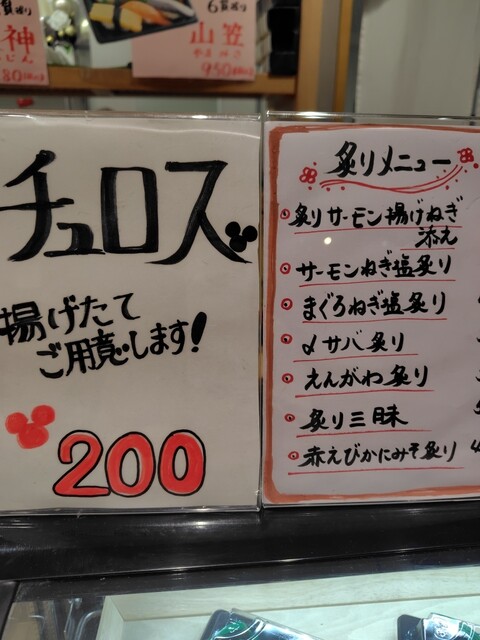 山笠
やまかさ
950
神
80
チュロス
揚げたて
ご用意します!
200
炙りメニュー
炙りサーモン揚げねぎ
添え
サーモンねぎ塩炙り
まぐろねぎ塩炙り
〆サバ炙り
えんがわ炙り
炙り三昧
赤えびかにみそ炙り